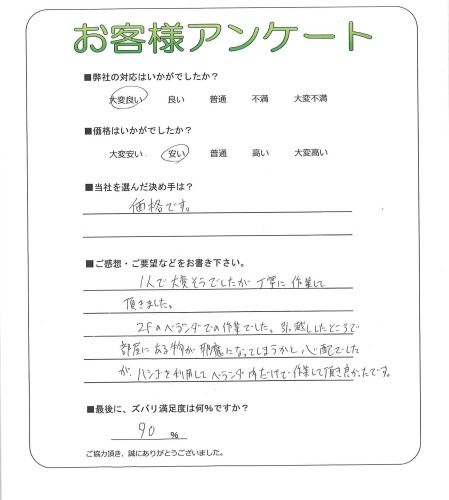 お客様アンケート
■弊社の対応はいかがでしたか？
大変良い 良い 普通 不満 大変不満
■価格はいかがでしたか？
大変安い 安い 普通 高い 大変高い
■当社を選んだ決め手は？
価格です。
■ご感想・ご要望などをお書き下さい。
1人で大変そうでしたが丁寧に作業して
頂きました。
2Fのベランダでの作業でした。引越ししたところで
部屋にある物が邪魔になってしまうかと心配でした
が、ハシゴを利用してベランダ内だけで作業して頂き良かったです。
■最後に、ズバリ満足度は何%ですか？
90 %
ご協力頂き、誠にありがとうございました。